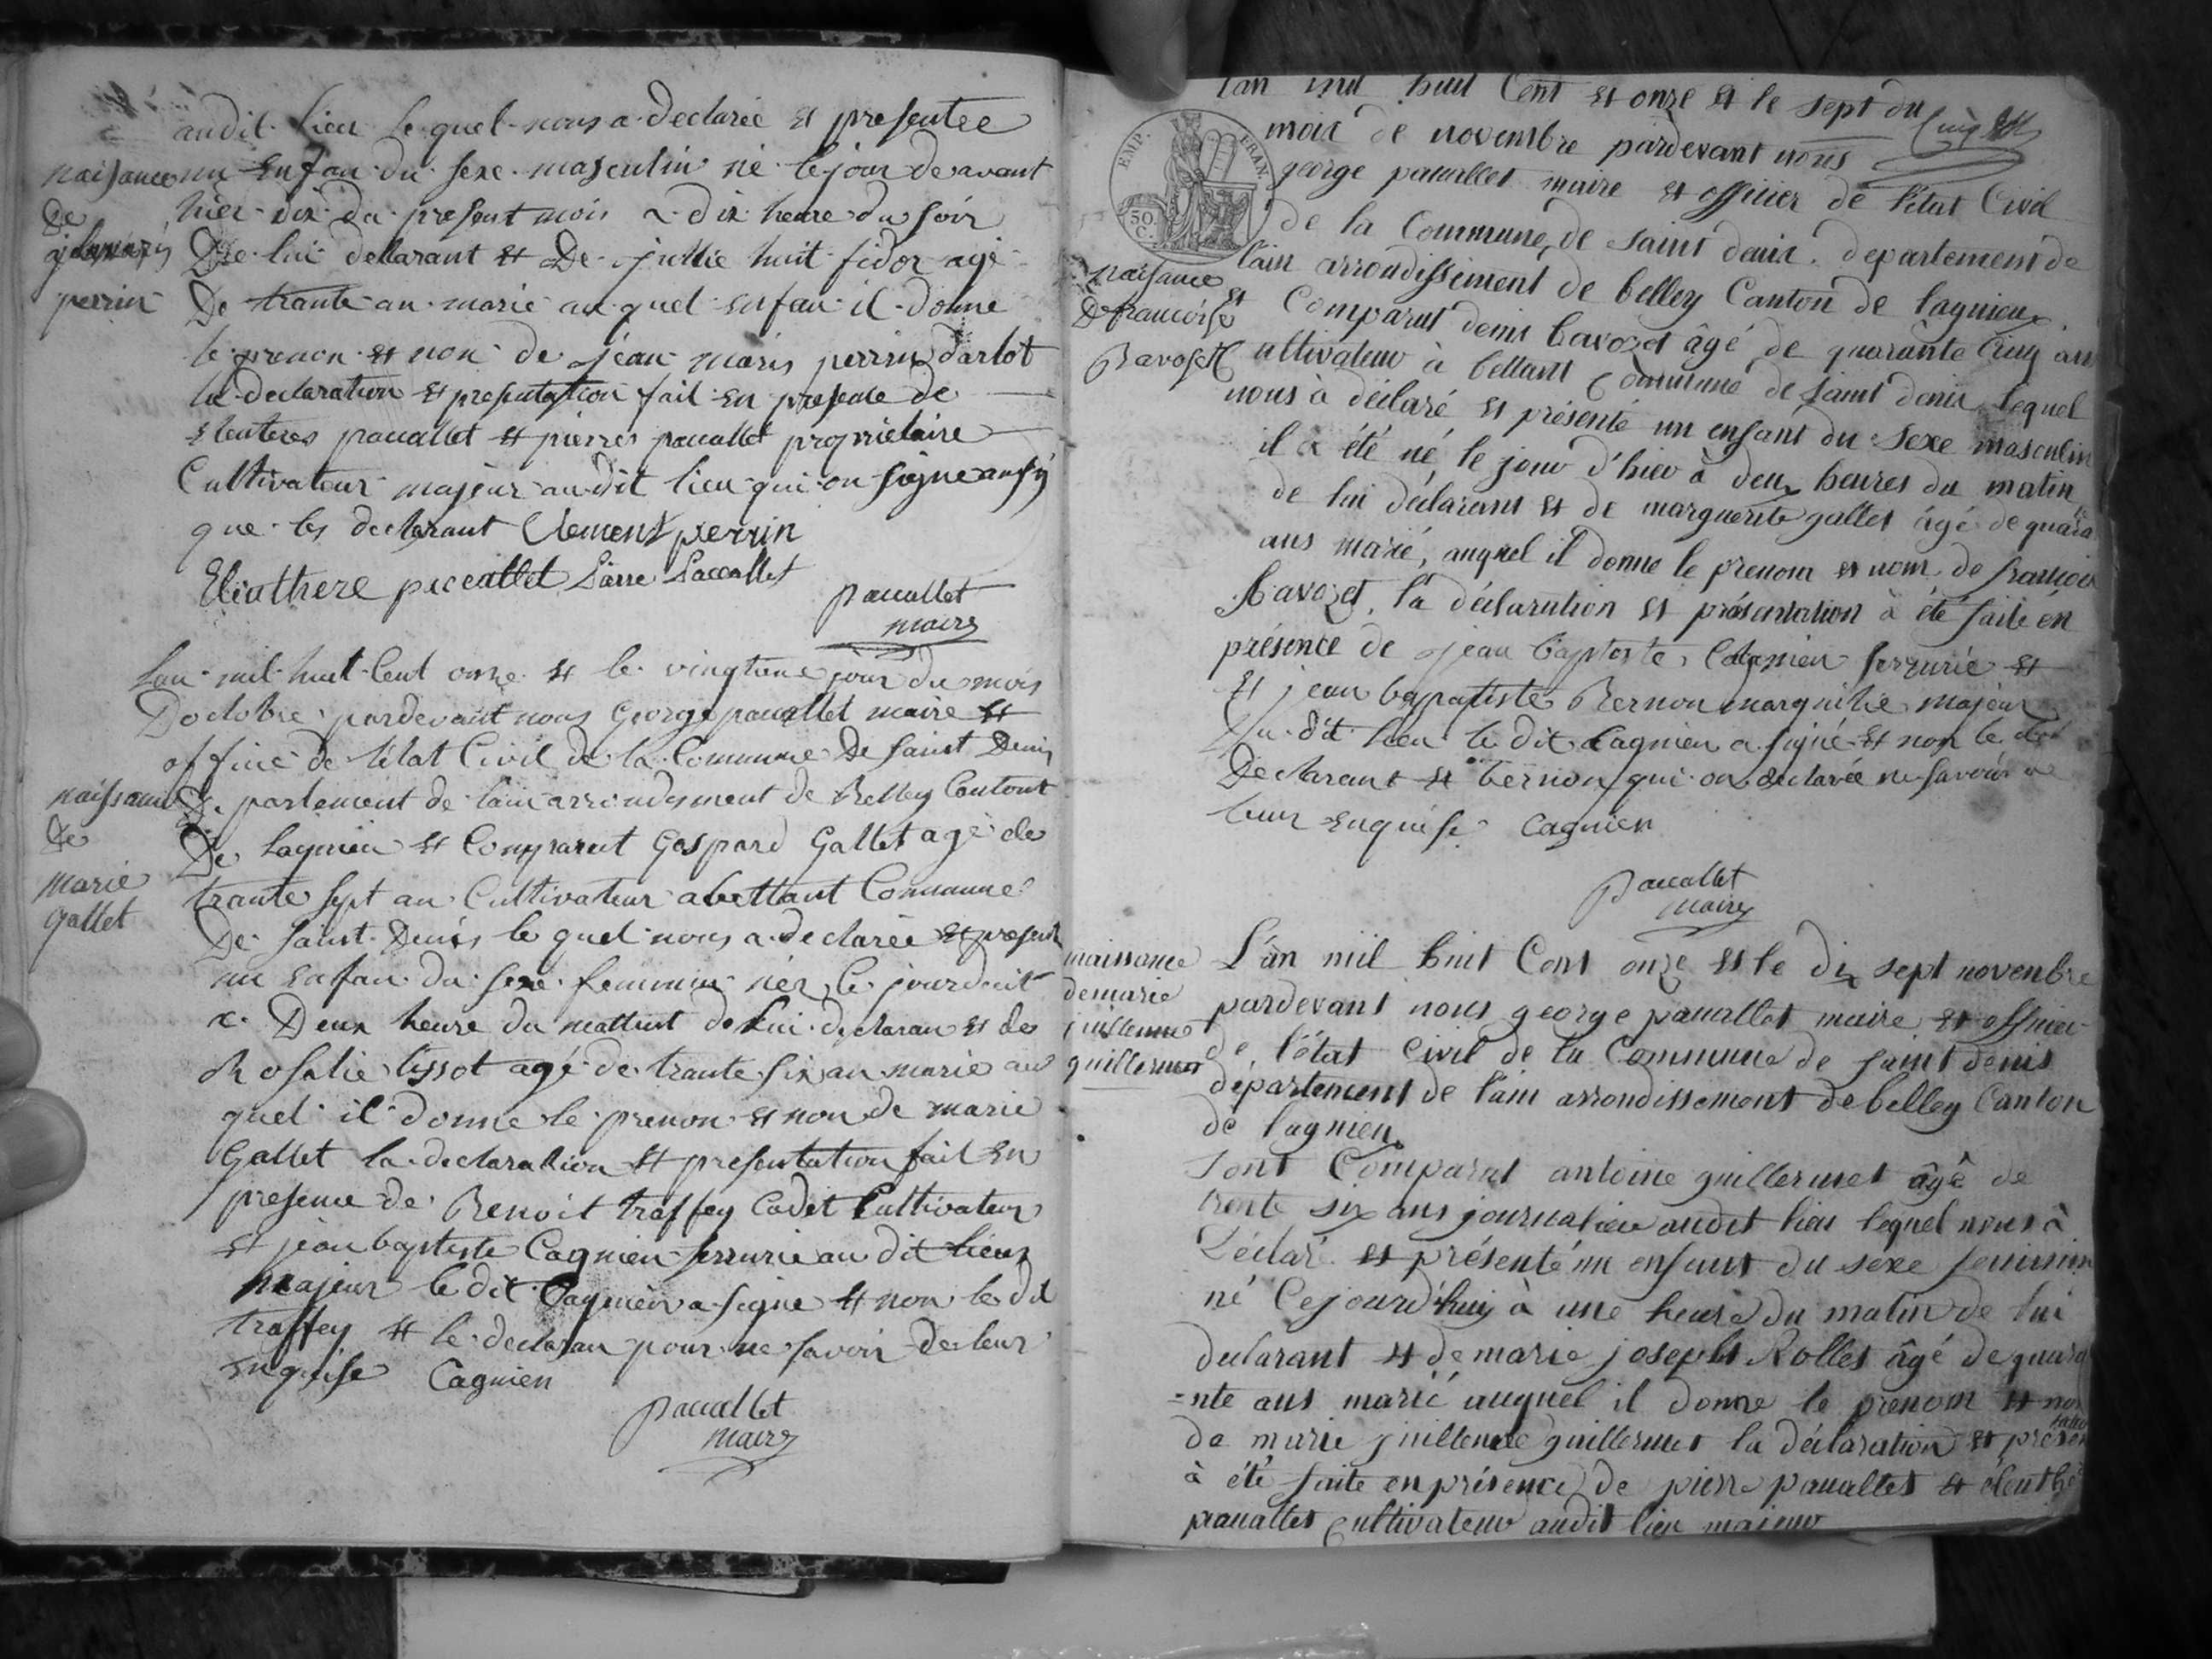 audit lieu le quel nous a declarée et presentee
un enfan du sexe masculin né le jour de avant
hier dix du present mois a dix heure du soir
De lui declarant et De jullie huit fidor agé
De trante an marié au quel enfan il donne
le prenon et non de jean maris perrin darlot
la declaration et presentation fait en presence de
eleuteres paucallet et pierres paucallet proprietaire
Cultivateur majeur au dit lieu qui on signe ansy
que les declarant Clement perrin
Eleathere paccallet Piarre Paccallet
paucallet
maire
naisance
De
jean maris
perrin
lan mil huit Cent onze et le vingtune jour du mois
Doctobre pardevant nous George paucallet maire et
officié de l'état Civil de la Commune De Saint Denis
De partement de lain arrondisment de Belley Contont
De lagnieu et Comparut Gaspard Gallet agé de
trante sept an Cultivateur abettant Commune
De Saint Denis le quel nous a declarée et present
un enfan du sexe feminin née le jourduit
a Deux heure du mattint de lui declaran et de
Rosalie tissot agé de trante six an marié au
quel il donne le prenon et non de marie
Gallet la declaration et presentation fait en
presence de Benoit traffey Cadet Cultivateur
et jean baptiste Cagnien serrurie au dit lieux
majeur le dit Cagnien a signe et non le dit
traffey et le declaran pour ne savoir de leur
enquise Cagnien
paucallet
maire
naissance
De
marie
gallet
lan mil huit Cent et onze et le sept du
mois de novembre pardevant nous
george paucallet maire et officier de l'état Civil
de la Commune de saint denis departement de
l'ain arrondissement de belley Canton de lagnieu
et Comparut denis bavozet âgé de quarante cinq ans
Cultivateur à bettant Commune de saint denis lequel
nous à déclaré et présenté un enfant du sexe masculin
il à été né le jour d'hier à deux heures du matin
de lui déclarant et de marguerite gallet âgé de quara
ans marié, auquel il donne le prenom et nom de francois
bavozet, la déclaration et présentation à été faite en
présence de jean baptiste Cagnien serrurié et
et jean bapatiste Bernon marguilie majeur
au dit lieu le dit Cagnien a signé et non le dit
Declarant et bernon qui on declarée ne savoir a
leur enquise Cagnien
Paucallet
maire
EMP. FRAN.
50 C.
naisance
De francoise
Bavozet
L'an mil huit Cent onze et le dix sept novembre
pardevant nous george paucallet maire et officier
de l'état Civil de la Commune de saint denis
département de l'ain arrondissement de belley Canton
de lagnieu
Sont Comparut antoine guillermet âgé de
trente six ans journalier audit lieu lequel nous à
Déclaré et présenté un enfant du sexe feminin
né Cejourd'huy à une heure du matin de lui
declarant et de marie josepht Rollet âgé de quara
=nte ans marié auquel il donne le prenom et nom
de marie juillenne guillermet la déclaration et présen
tation
à été faite en présence de pierre paucallet et eleuthe
paucallet Cultivateur audit lieu majeur
naissance
de marie
juillenne
guillermet